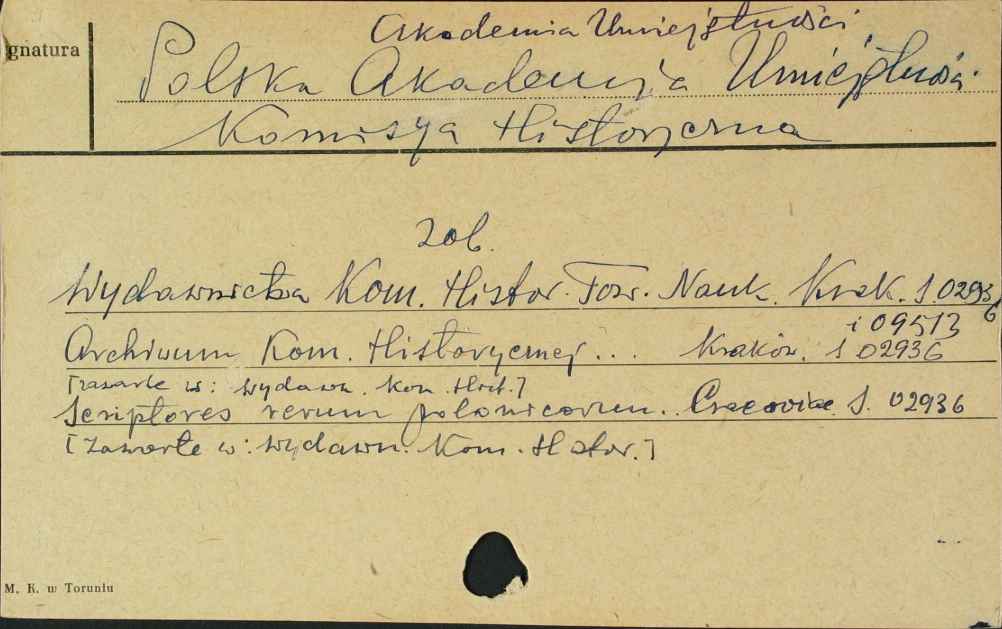 Akademia Umiejętności
gnatura
Polska Akademja Umiejętności
Komisya Historyczna
zob.
Wydawnictwa Kom. Histor. Tow. Nauk. Krak. S. 02936
i 09513
Archiwum Kom. Historycznej... Kraków. S 02936
[zawarte w: Wydawn. Kom. Hist.]
Scriptores rerum polonicarum. Cracoviae S. 02936
[Zawarte w: Wydawn. Kom. Histor.]
M. K. w Toruniu